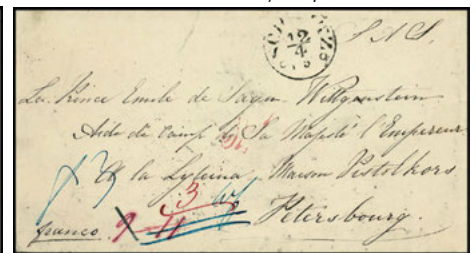 12
4
S. A. S.
Le Prince Emile de Sayn-Wittgenstein
Aide de Camp de Sa Majesté l'Empereur
à la Lyteina, Maison Pistolkors
Petersbourg.
franco.
3
9
11